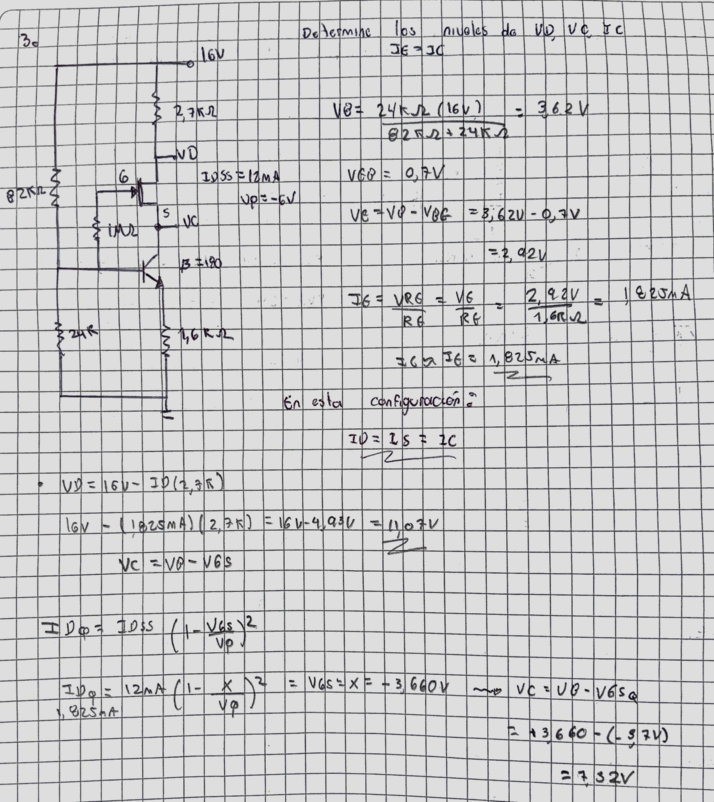 3.
Determine los niveles de VD, VC, IC
IE = IC
16V
2,7KΩ
VD
G
IDSS = 12mA
VP = -6V
82KΩ
S
VC
1MΩ
β = 180
24K
1,6KΩ
VB = 24KΩ (16V) / 82KΩ + 24KΩ = 3,62V
= 0,7V
VE = VB - VBE = 3,62V - 0,7V
= 2,92V
IE = VRE / RE = VE / RE = 2,92V / 1,6KΩ = 1,825mA
IC ≈ IE = 1,825mA
En esta configuración:
ID = IS = IC
• VD = 16V - ID (2,7K)
16V - (1,825mA) (2,7K) = 16V - 4,93V = 11,07V
VC = VB - VGS
IDφ = IDSS (1 - VGS / VP)²
IDφ = 12mA (1 - X / Vφ)² = VGS = X = -3,660V → VC = VB - VGSQ
1,825mA
= +3,660 - (-3,7V)
= 7,32V